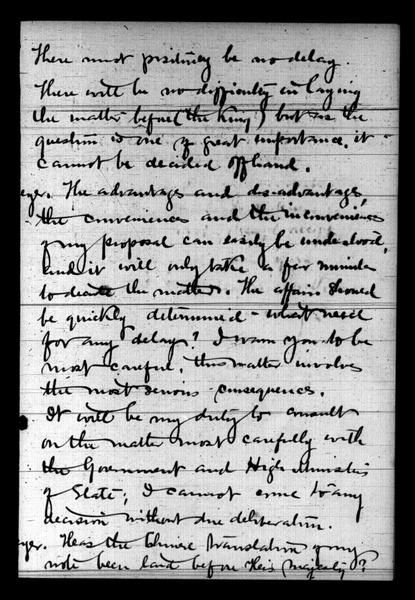 There must positively be no delay.
There will be no difficulty in laying
the matter before (the King) but as the
question is one of great importance, it
cannot be decided offhand.
eyer. The advantages and dis-advantages,
the conveniences and the inconveniences
of my proposal can easily be understood,
and it will only take a few minutes
to decide the matter. The affair should
be quickly determined - what need
for any delay? I warn you to be
most careful, this matter involves
the most serious consequences.
It will be my duty to consult
on the matter most carefully with
the Government and High Ministers
of State; I cannot come to any
decision without due deliberation.
eyer. Has the Chinese translation of my
note been laid before His Majesty?